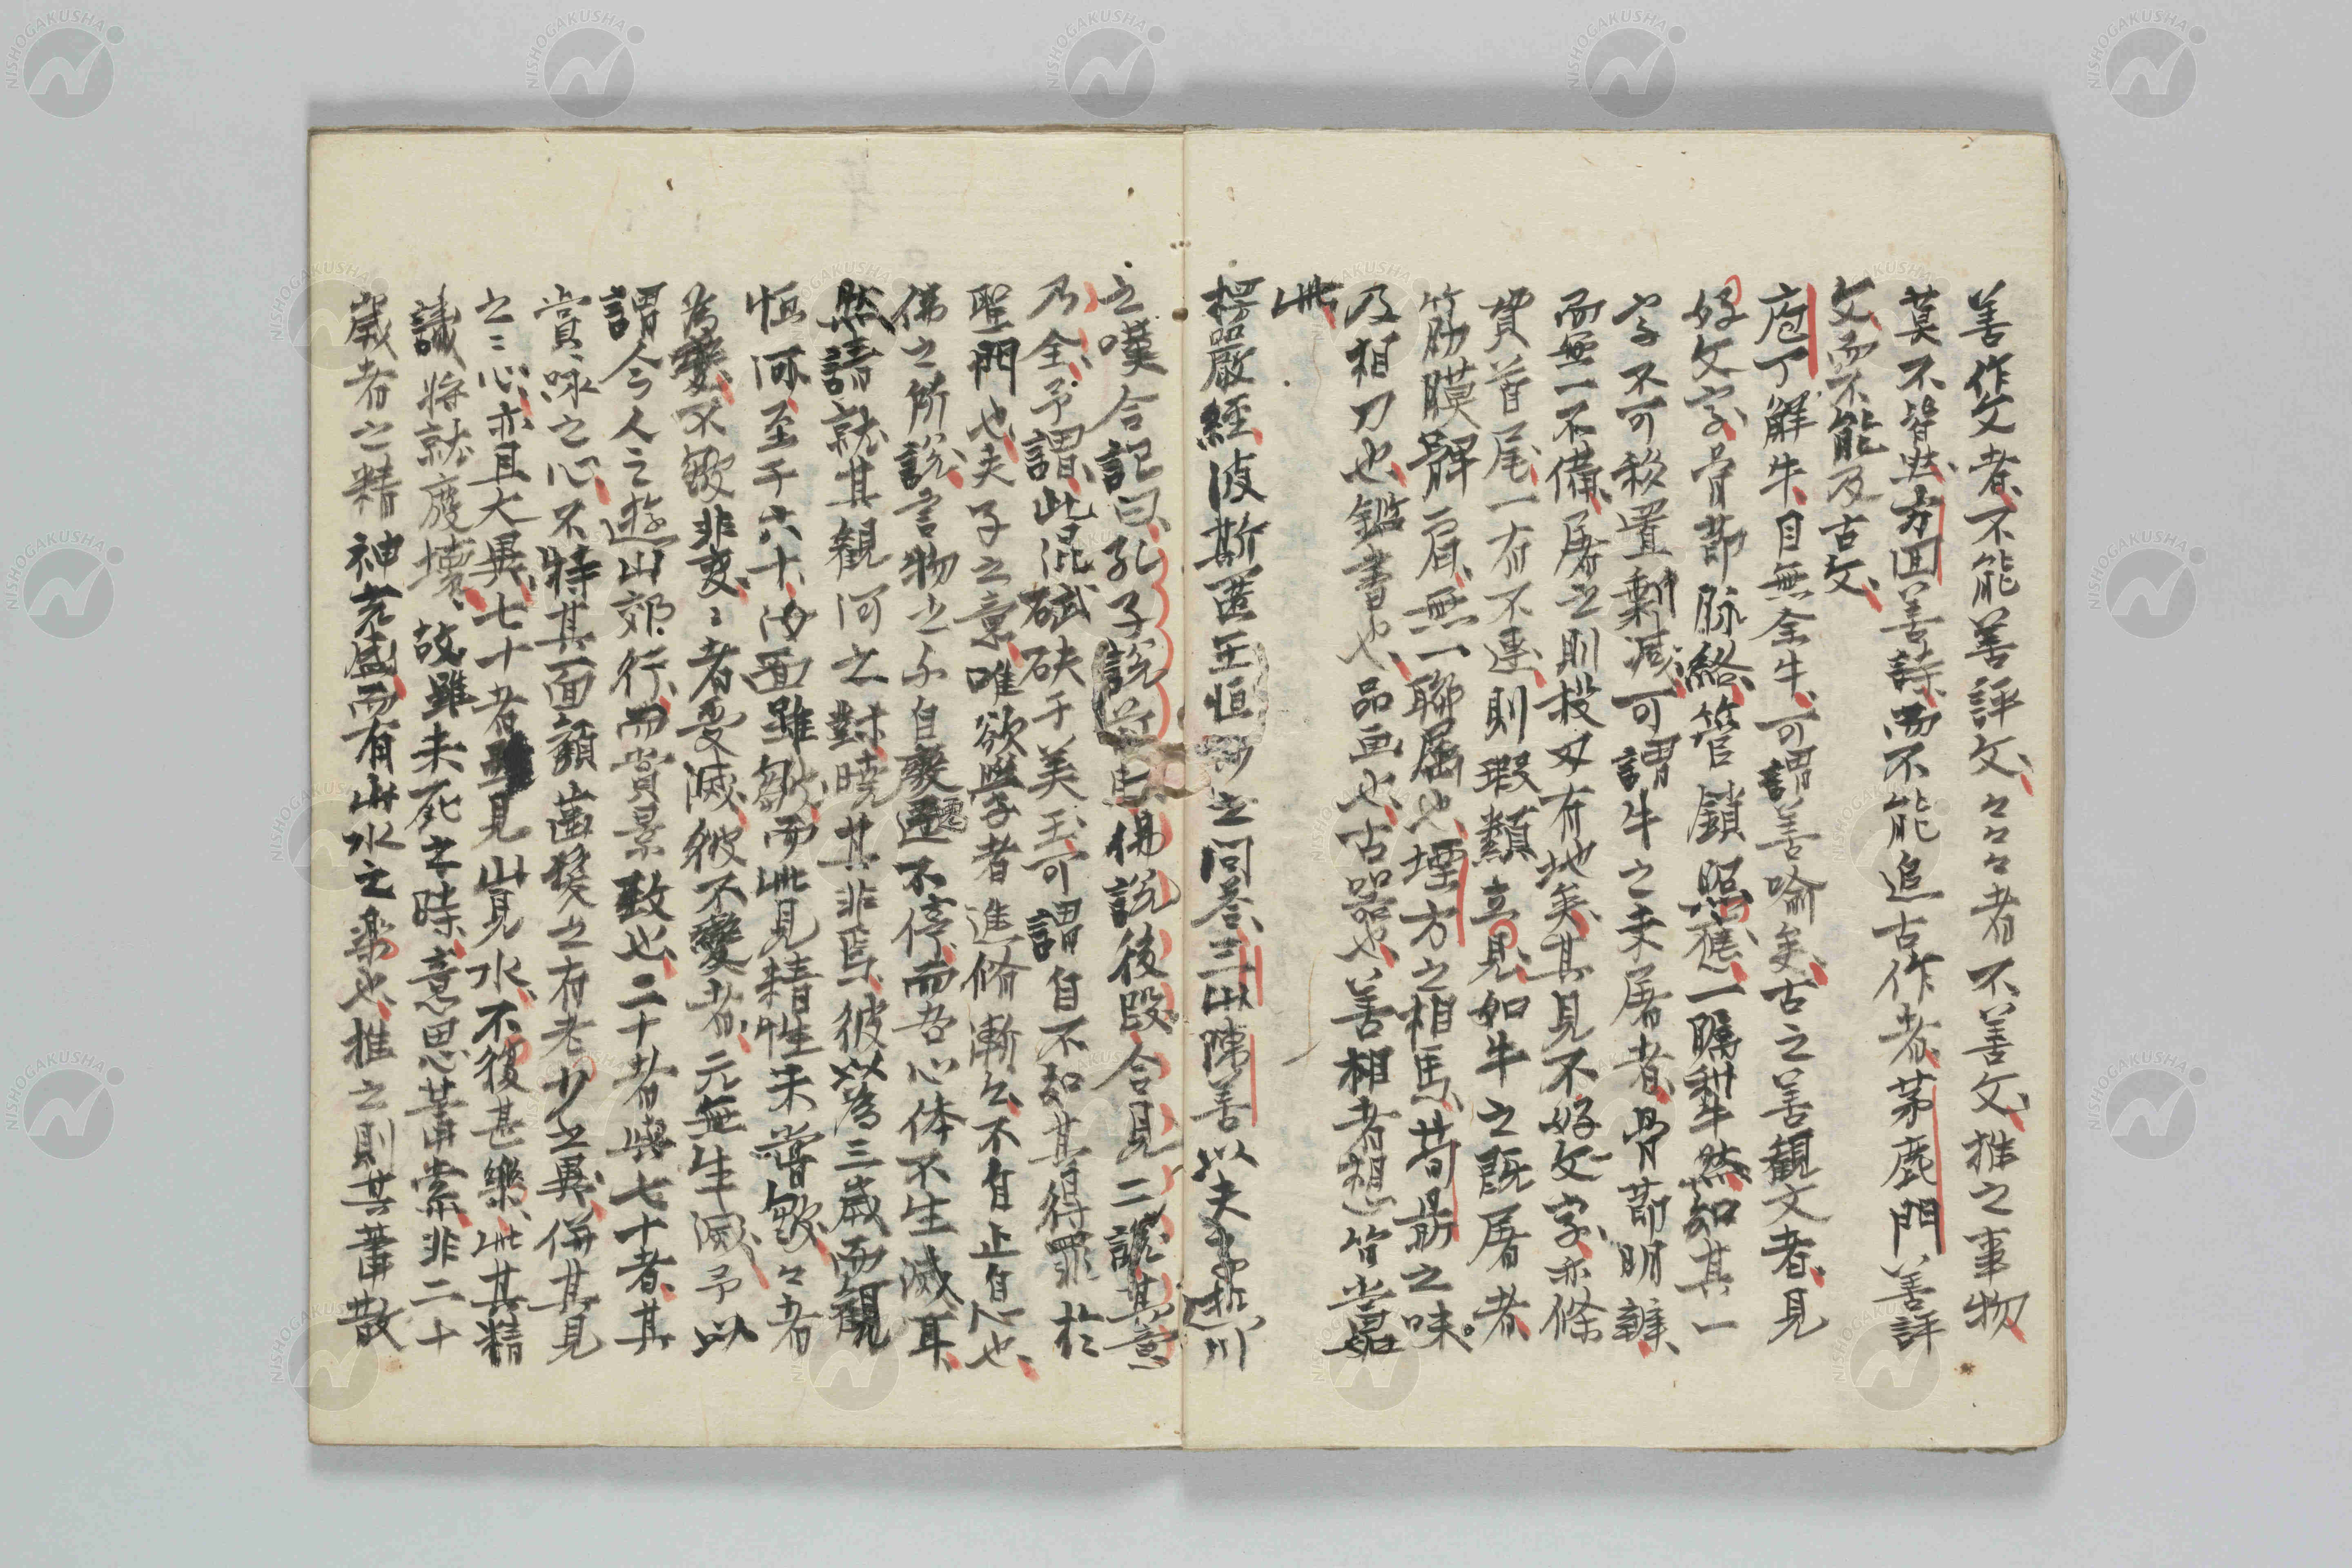 善作文者、不能善評文、々々々者不善文、推之事物
莫不皆然、方回善詩、而不能追古作者、茅鹿門善評
文、而不能及古文、
庖丁解牛、目無全牛、可謂善喩矣、古之善観文者、見
好文字、骨節脉絡、管鎖照應、一矚犂然、知其一
字不可移置剰减、可謂牛之未屠者、骨節明辨、
而無一不備、屠之則投刃有地矣、其見不好文字、亦條
貫首尾、一有不連、則瑕纇立見、如牛之既屠者、
筋膜觧肩、無一聯属也、堙方之相馬、苟勗之味。
及相刀也、鑑書也、品画也、古器也、善相者想皆當如
此、
楞嚴經波斯匿王恒河之問荅、三山陳善以夫子逝川
之嘆合記曰、孔子説前段、佛説後段、合見二説、其意
乃全、予謂、此混碔砆于美玉、可謂自不知其得罪於
聖門也、夫子之意、唯欲學者進脩漸々、不自止自心也、
佛之所説、言物之不自廢遷不停、而吾心体不生滅耳、
然請就其観河之對、曉其非焉、彼以為三歳而観
恒河、至于六十、汝面雖皺、而此見精性未嘗皺、々者
為變、不皺非変、々者受滅、彼不變者、元無生滅、予以
謂今人之遊山郊行、而賞景致也、二十者與七十者、其
賞咏之心、不特其面顔齒髮之有老少之異、併其見
之之心、亦且大異、七十者見山見水、不復甚樂、此其精
識将就廢壊、故雖未死之時、意思蕭索、非二十
歳者之精神充盛、而有山水之楽也、推之則其蕭散